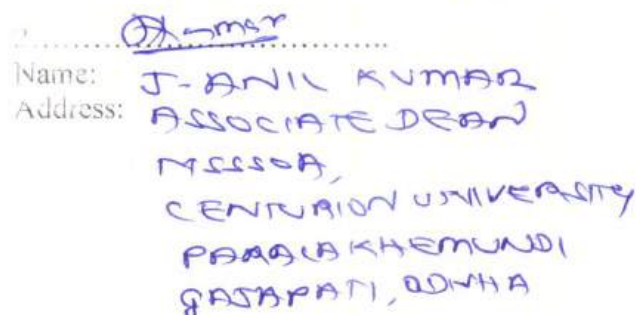 Kumar
Name: J-ANIL KUMAR
Address: ASSOCIATE DEAN
MSSSOA,
CENTURION UNIVERSITY
PARALAKHEMUNDI
GAJAPATI, ODISHA